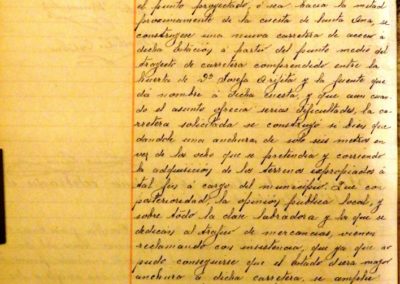 el punto proyectado, ó sea hacia la mitad
proximamente de la cuesta de Santa Ana, se
construyese una nueva carretera de acceso á
dicha Estación á partir del punto medio del
trayecto de carretera comprendido entre la
huerta de Dª Josefa Arjeta y la fuente que
dá nombre á dicha cuesta, y que aun cuan
do el asunto ofrecia serias dificultades, la ca
rretera solicitada se construyó si bien que
dandole una anchura de solo seis metros en
vez de los ocho que se pretendia y corriendo
la adquisicion de los terrenos expropiados á
tal fin á cargo del municipio. Que con
posterioridad, la opinion publica local, y
sobre todo la clase labradora y la que se
dedica al trafico de mercancias, vienen
reclamando con insistencia, que ya que no
pudo conseguirse que el Estado diera mayor
anchura á dicha carretera, se amplie